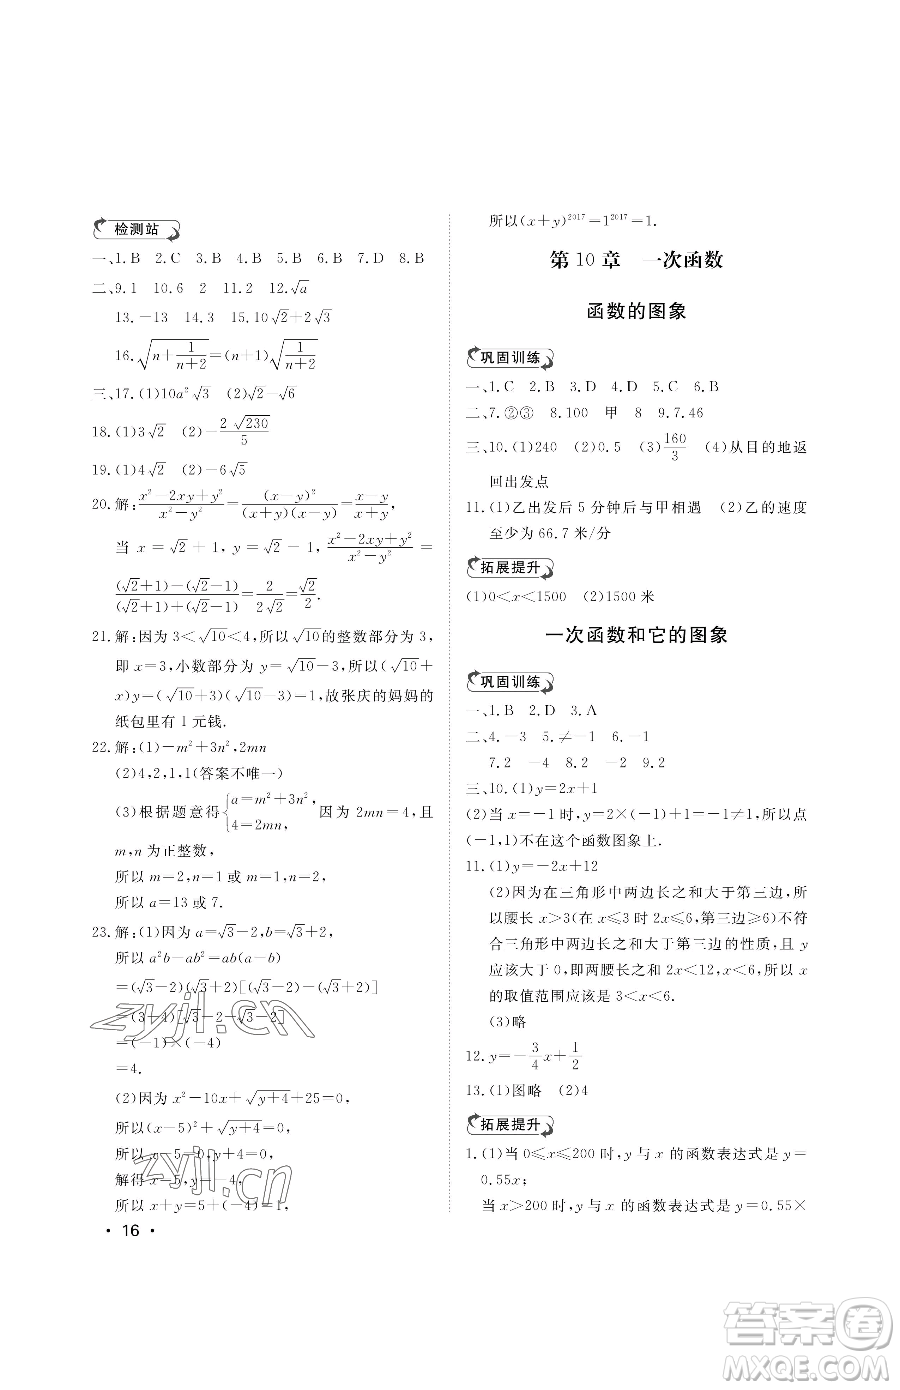 检测站
一、1.B 2.C 3.B 4.C 5.B 6.B 7.D 8.B
二、9.1 10.6 2 11.2 12.√a
13.－13 14.3 15.10√2＋2√3
16.√(n＋1/(n＋2))＝(n＋1)√(1/(n＋2))
三、17.(1)10a²√3 (2)√2－√6
18.(1)3√2 (2)－2√230/5
19.(1)4√2 (2)－6√5
20.解:(x²－2xy＋y²)/(x²－y²)＝(x－y)²/((x＋y)(x－y))＝(x－y)/(x＋y),
当 x＝√2＋1,y＝√2－1,(x²－2xy＋y²)/(x²－y²)＝
((√2＋1)－(√2－1))/((√2＋1)＋(√2－1))＝2/(2√2)＝√2/2.
21.解:因为 3＜√10＜4,所以√10的整数部分为 3,
即 x＝3,小数部分为 y＝√10－3,所以(√10＋
x)y＝(√10＋3)(√10－3)＝1,故张庆的妈妈的
纸包里有 1 元钱.
22.解:(1)－m²＋3n²,2mn
(2)4,2,1,1(答案不唯一)
(3)根据题意得{a＝m²＋3n², 4＝2mn, 因为 2mn＝4,且
m,n 为正整数,
所以 m－2,n－1 或 m－1,n－2,
所以 a＝13 或 7.
23.解:(1)因为 a＝√3－2,b＝√3＋2,
所以 a²b－ab²＝ab(a－b)
＝(√3－2)(√3＋2)[(√3－2)－(√3＋2)]
＝(3－4)[√3－2－√3－2]
＝(－1)×(－4)
＝4.
(2)因为 x²－10x＋√(y＋4)＋25＝0,
所以(x－5)²＋√(y＋4)＝0,
所以 x－5＝0,y＋4＝0,
解得 x－5,y－－4,
所以 x＋y＝5＋(－4)＝1,
· 16 ·
所以(x＋y)²⁰¹⁷＝1²⁰¹⁷＝1.
第 10 章 一次函数
函数的图象
巩固训练
一、1.C 2.B 3.D 4.D 5.C 6.B
二、7.②③ 8.100 甲 8 9.7.46
三、10.(1)240 (2)0.5 (3)160/3 (4)从目的地返
回出发点
11.(1)乙出发后 5 分钟后与甲相遇 (2)乙的速度
至少为 66.7 米/分
拓展提升
(1)0＜x＜1500 (2)1500 米
一次函数和它的图象
巩固训练
一、1.B 2.D 3.A
二、4.－3 5.≠－1 6.－1
7.2 －4 8.2 9.2
三、10.(1)y＝2x＋1
(2)当 x＝－1 时,y＝2×(－1)＋1＝－1,所以点
(－1,1)不在这个函数图象上.
11.(1)y＝－2x＋12
(2)因为在三角形中两边长之和大于第三边,所
以腰长 x＞3(在 x≤3 时 2x≤6,第三边≥6)不符
合三角形中两边长之和大于第三边的性质,且 y
应该大于 0,即两腰长之和 2x＜12,x＜6.所以 x
的取值范围应该是 3＜x＜6.
(3)略
12.y＝－3/4x＋1/2
13.(1)图略 (2)4
拓展提升
1.(1)当 0≤x≤200 时,y 与 x 的函数表达式是 y＝
0.55x;
当 x＞200 时,y 与 x 的函数表达式是 y＝0.55×
zyjl.cn
zyjl.cn
答案圈
MXQE.COM